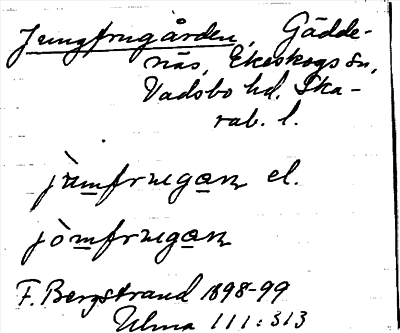 Jungfrugården, Gädde-
näs, Ekeskogs sn,
Vadsbo hd. Ska-
rab. l.
jùmfrugaɳ el.
jòmfrugaɳ
F. Bergstrand 1898-99
Ulma 111:313